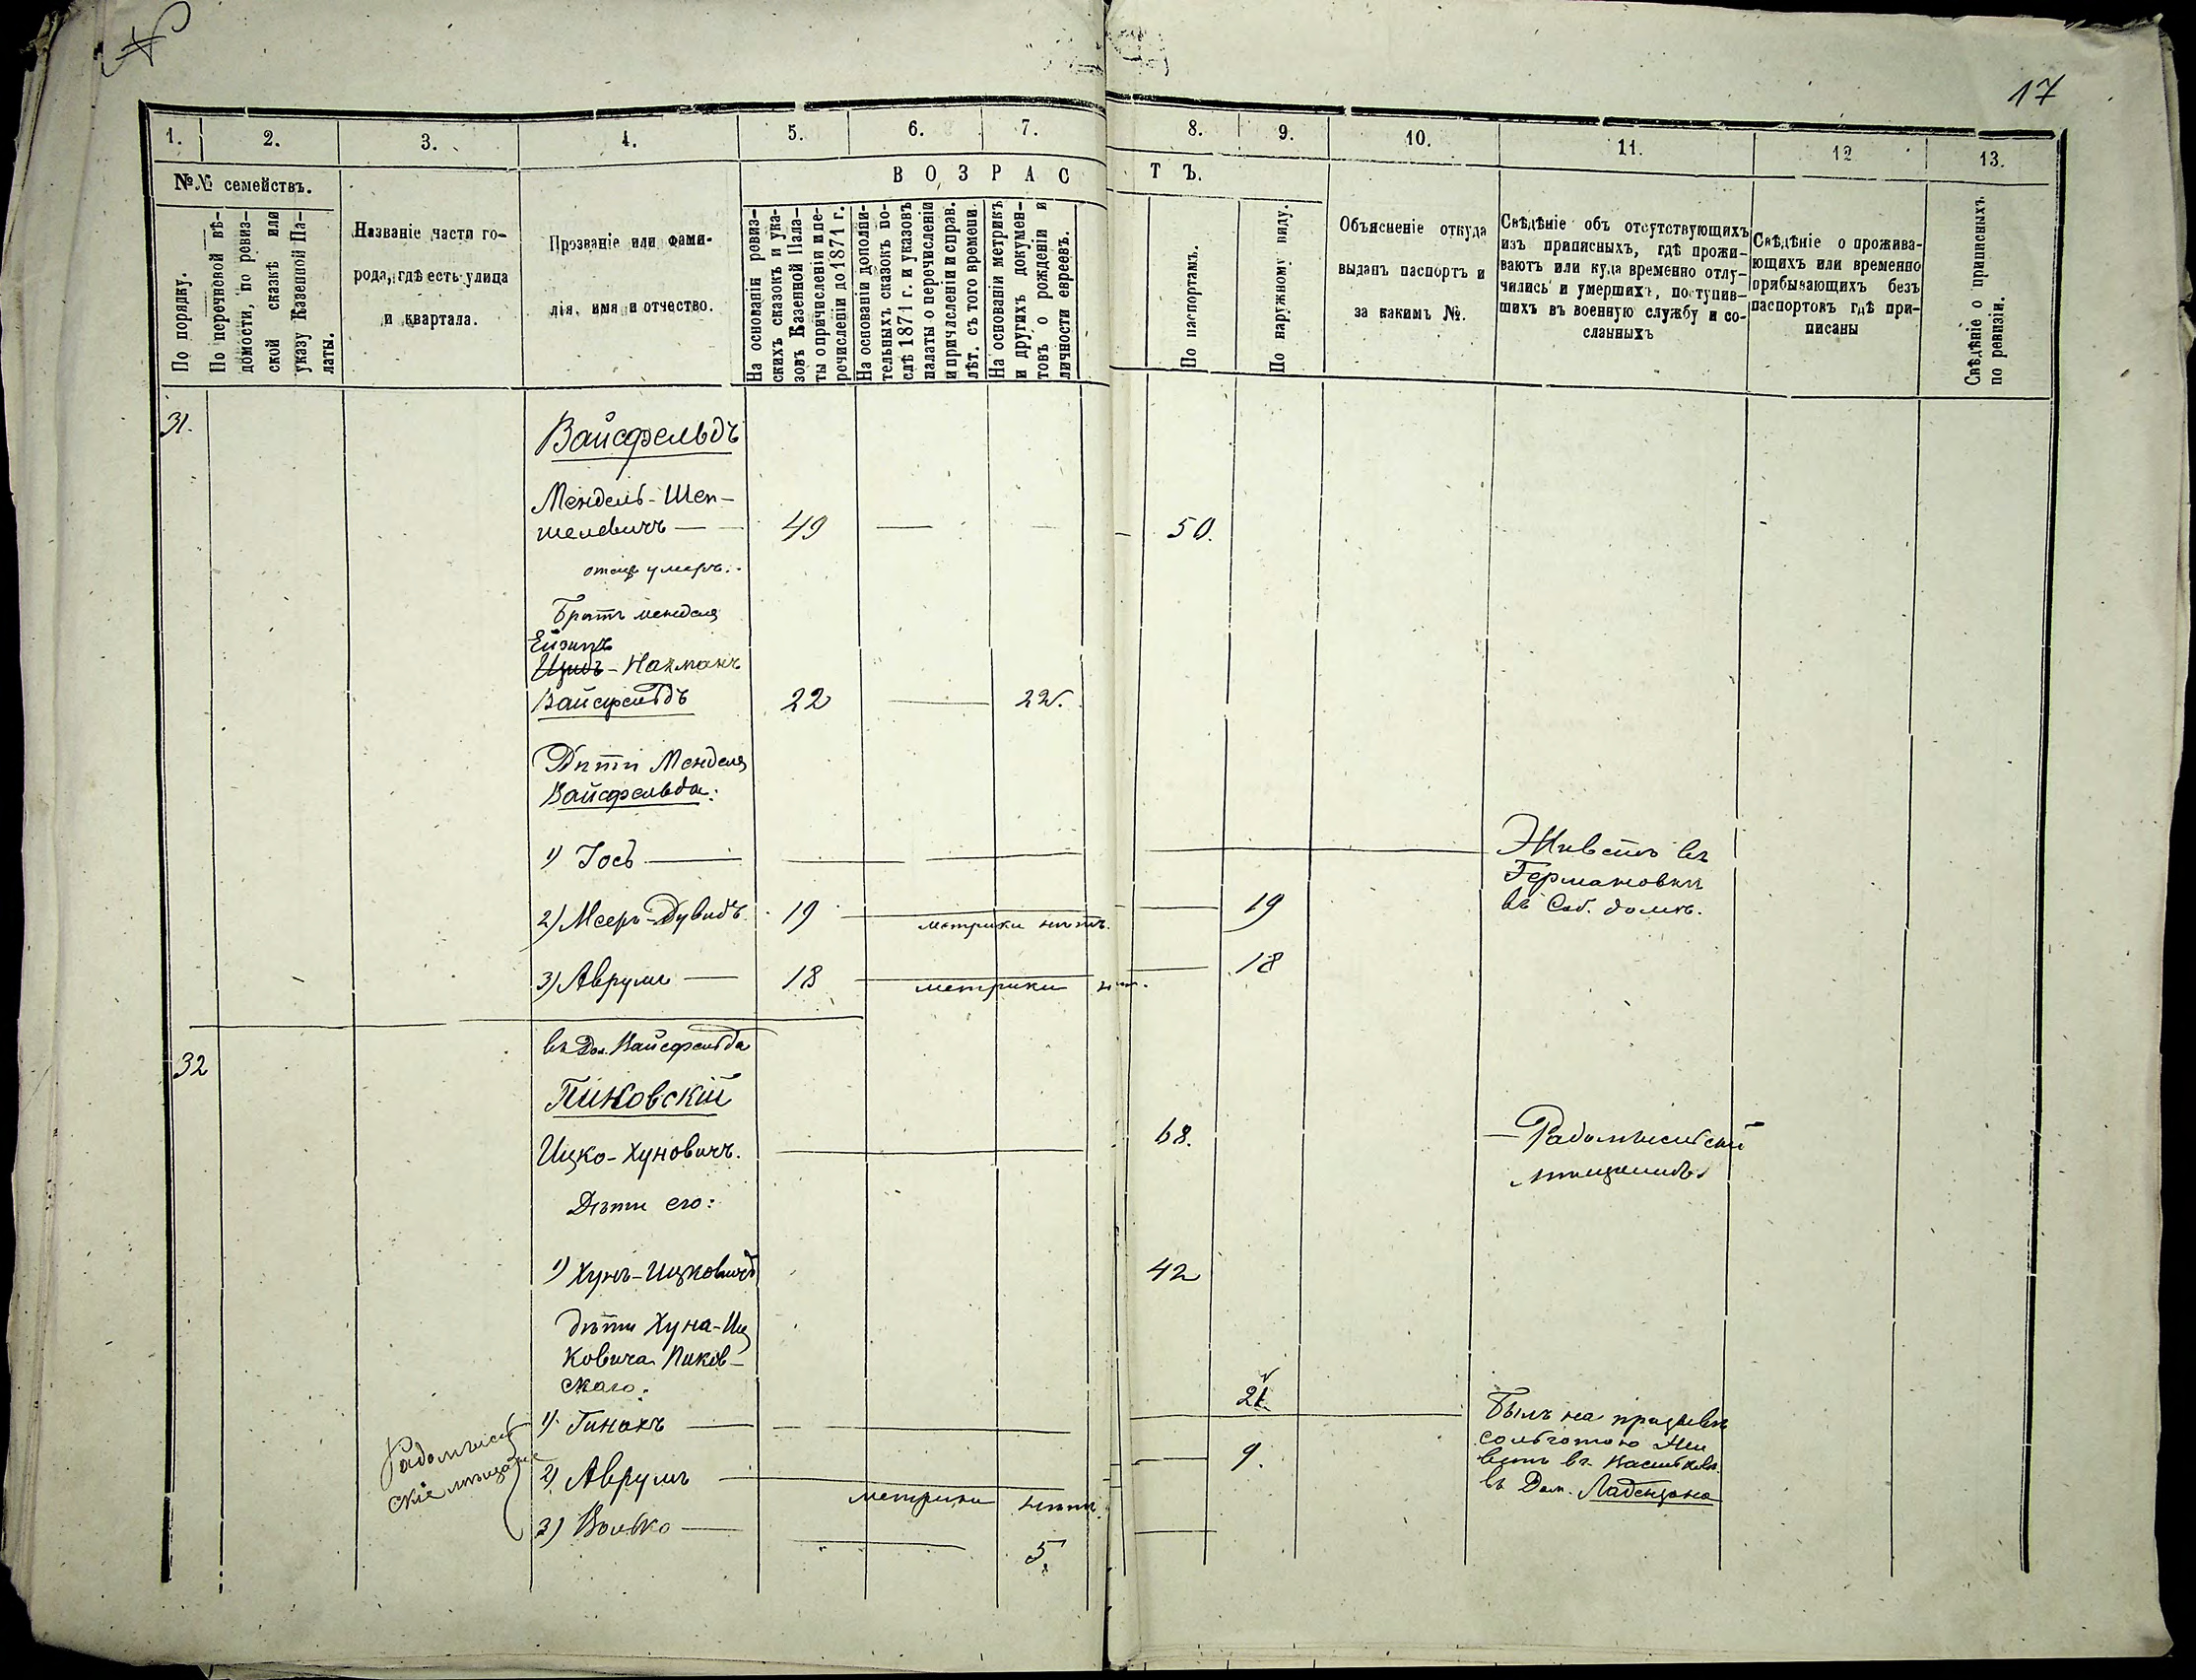 17
1. 2. 3. 4. 5. 6. 7. 8. 9. 10. 11. 12 13.
№№ семействъ.
По порядку.
По перечневой вѣ-
домости, по ревиз-
ской сказкѣ или
указу Казенной Па-
латы.
Названіе части го-
рода, гдѣ есть улица
и квартала.
Прозваніе или фами-
лія, имя и отчество.
ВОЗРАСТЪ.
На основаніи ревиз-
скихъ сказокъ и ука-
зовъ Казенной Пала-
ты о причисленіи и пе-
речисленіи до 1871 г.
На основаніи дополни-
тельныхъ сказокъ по-
слѣ 1871 г. и указовъ
палаты о перечисленіи
и причисленіи и справ.
лѣт. съ того времени.
На основаніи метрикъ
и другихъ докумен-
товъ о рожденіи и
личности евреевъ.
По паспортамъ.
По наружному виду.
Объясненіе откуда
выданъ паспортъ и
за какимъ №.
Свѣдѣніе объ отсутствующихъ
изъ приписныхъ, гдѣ прожи-
ваютъ или куда временно отлу-
чились и умершихъ, поступив-
шихъ въ военную службу и со-
сланныхъ
Свѣдѣніе о прожива-
ющихъ или временно
прябывающихъ безъ
паспортовъ гдѣ при-
писаны
Свѣдѣніе о приписныхъ
по ревизіи.
31.
Вайсфельдъ
Мендель-Шеп-
шелевичъ — 49 — — 50.
отецъ умеръ.
Братъ менделя
Ейзикъ
Ицикъ - Нахманъ
Вайсфельдъ 22 — 22.
Дѣти Менделя
Вайсфельда:
1) Іось — Живетъ въ
Германовкѣ
въ Соб. домѣ.
2) Мееръ-Дувидъ 19 метрики нѣтъ. 19
3) Аврумъ — 18 метрики нѣт. 18
32
въ Дом. Вайсфельда
Пиковскій
Ицко-Хуновичъ. — 68. — Радомысльскій
мѣщанинъ
Дѣти его:
1) Хунъ-Ицковичъ 42
дѣти Хуна-Иц
ковича Пиков-
скаго:
Радомысль
скіе мѣщане
1) Гинахъ — 21 Былъ на призывѣ
со льготою Жи
ветъ въ Васильковѣ
въ Дом.
2) Аврумъ — метрики нѣтъ. 9.
3) Волько — 5.